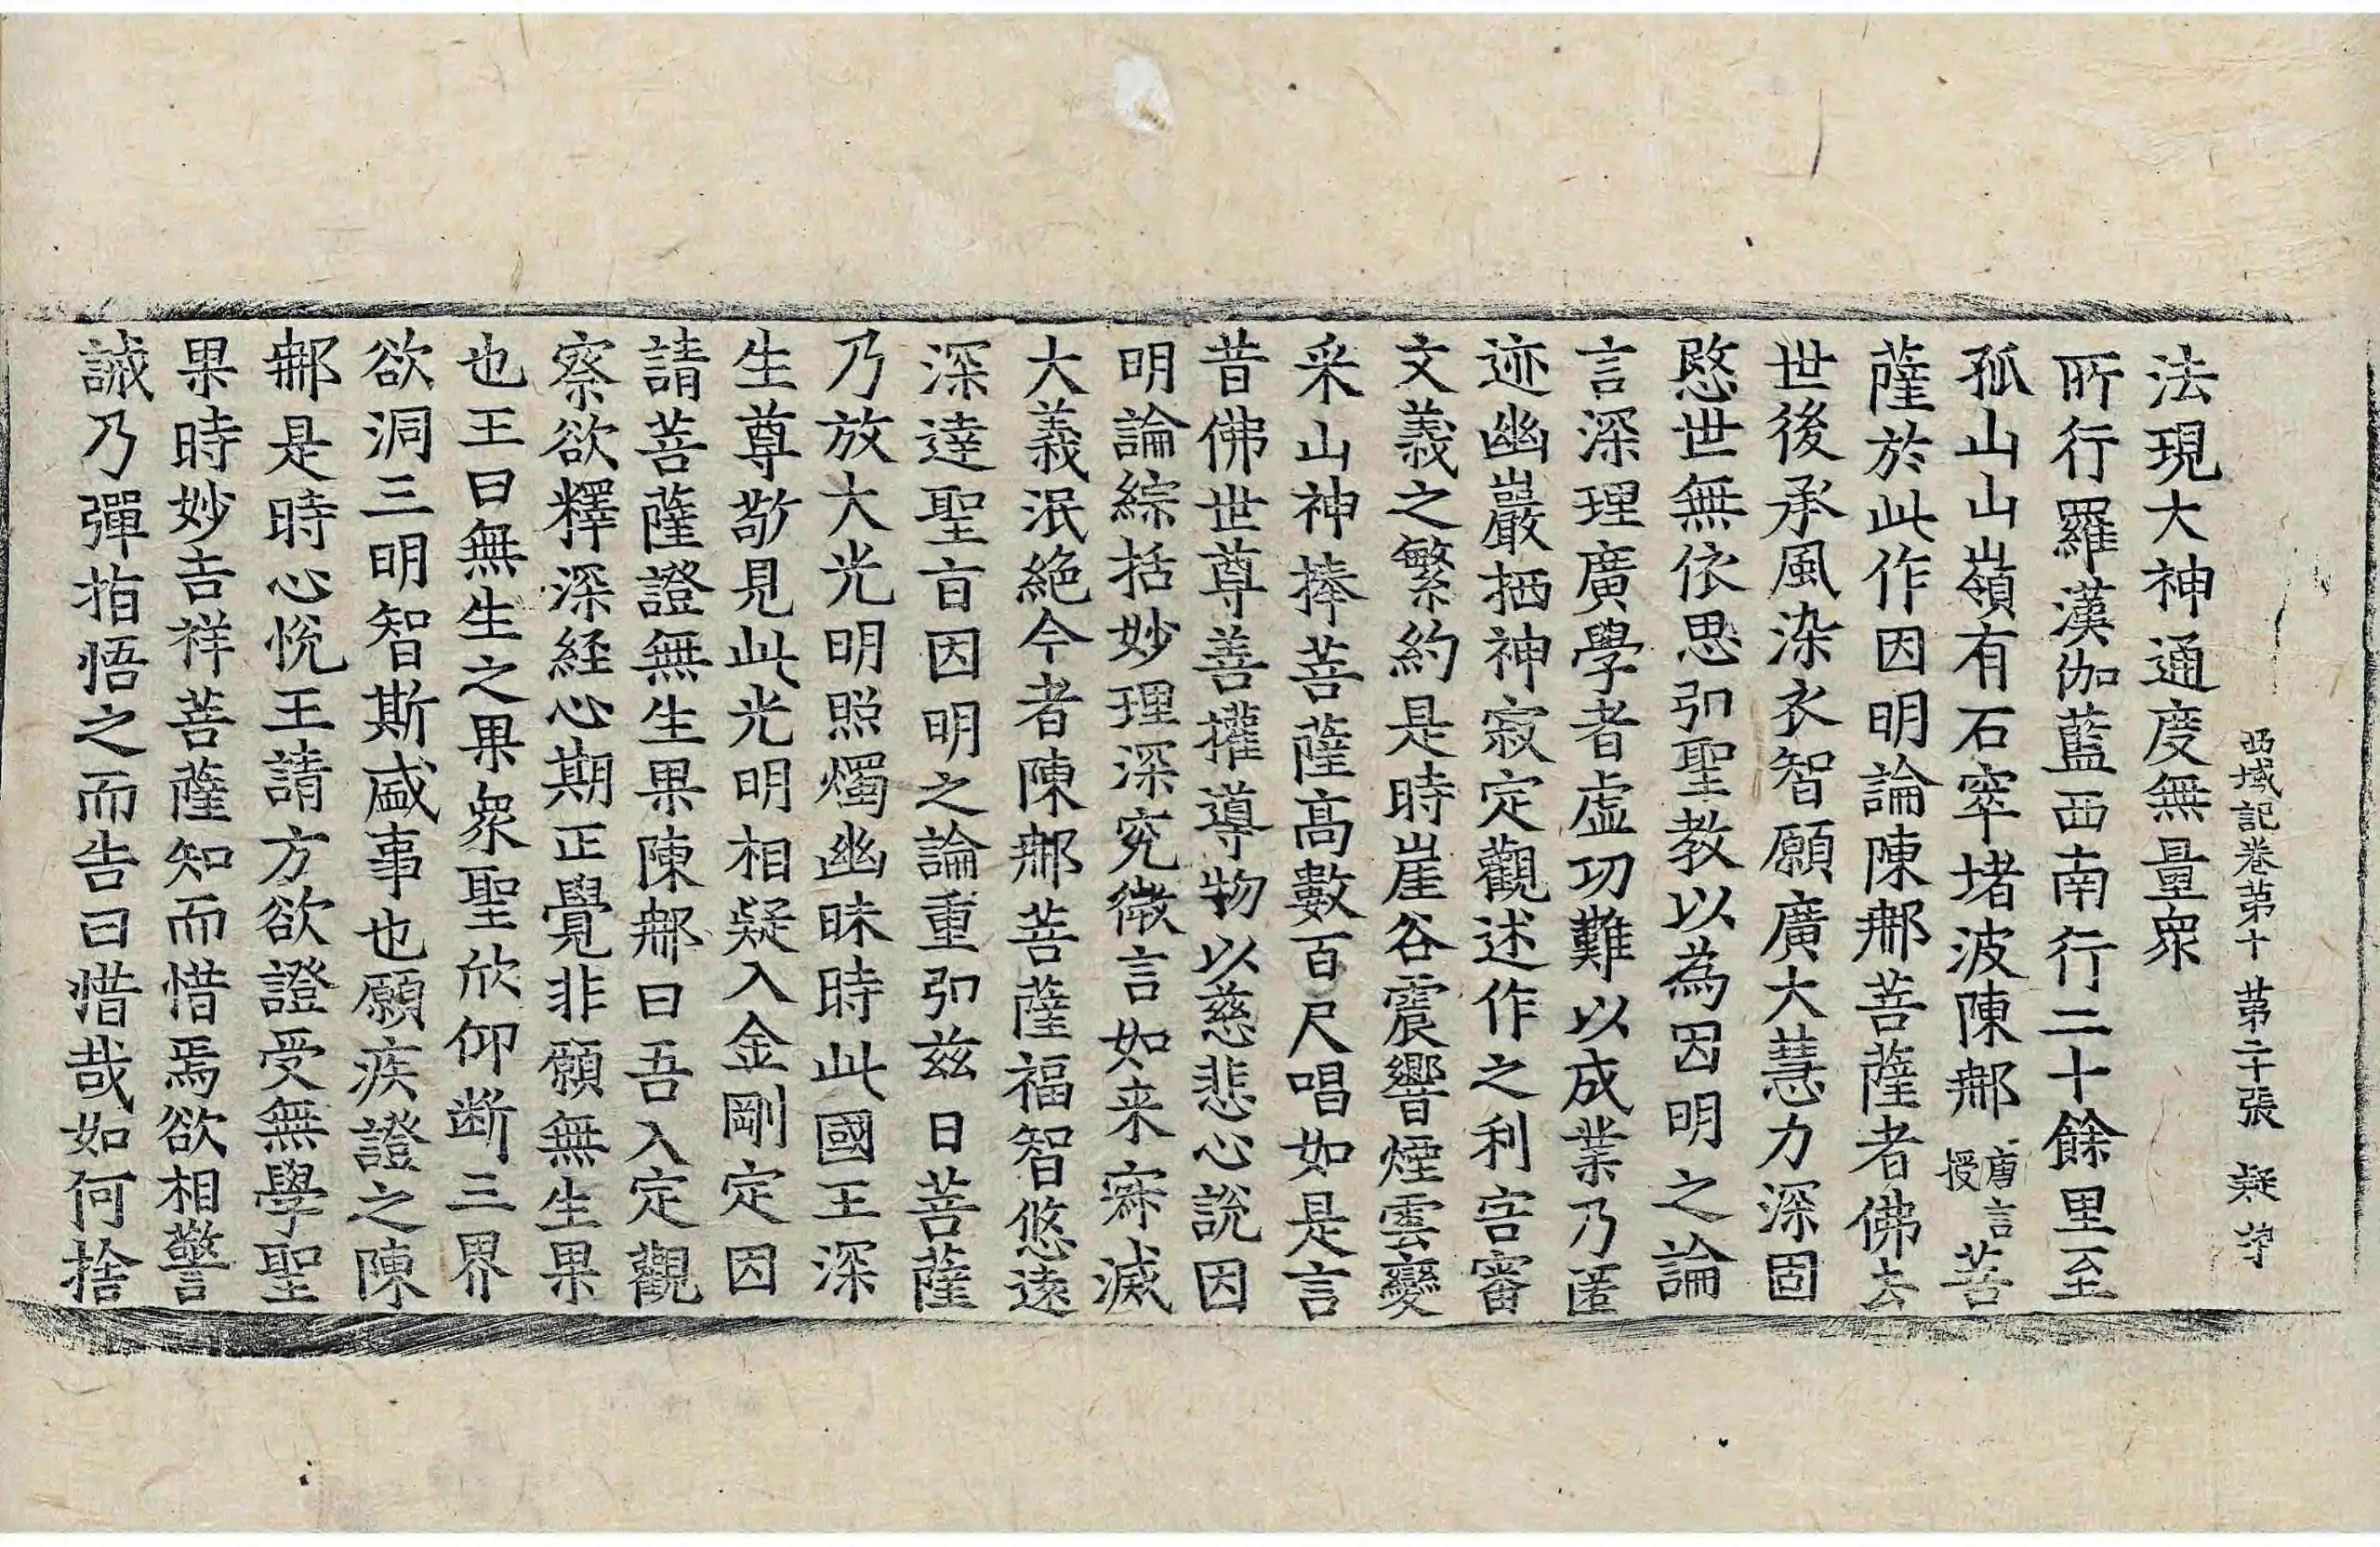 西域記卷第十 第二十張 疑字
法現大神通度無量衆
所行羅漢伽藍西南行二十餘里至
孤山山嶺有石窣堵波陳那唐言授菩
薩於此作因明論陳那菩薩者佛去
世後承風染衣智願廣大慧力深固
愍世無依思弘聖教以為因明之論
言深理廣學者虛功難以成業乃匿
迹幽巖栖神寂定觀述作之利害審
文義之繁約是時崖谷震響煙雲變
采山神捧菩薩高數百尺唱如是言
昔佛世尊善權導物以慈悲心說因
明論綜括妙理深究微言如来寂滅
大義泯絶今者陳那菩薩福智悠遠
深達聖旨因明之論重弘茲日菩薩
乃放大光明照燭幽昧時此國王深
生尊敬見此光明相疑入金剛定因
請菩薩證無生果陳那曰吾入定觀
察欲釋深経心期正覺非願無生果
也王曰無生之果衆聖欣仰断三界
欲洞三明智斯盛事也願疾證之陳
那是時心悅王請方欲證受無學聖
果時妙吉祥菩薩知而惜焉欲相警
誡乃彈指悟之而告曰惜哉如何捨